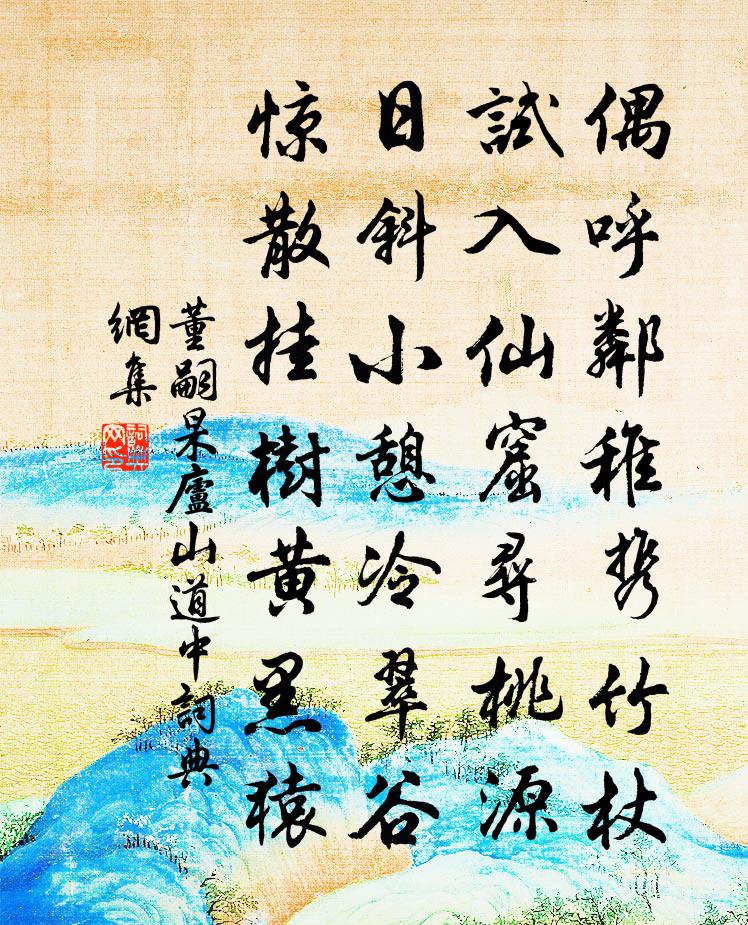 偶呼鄰稚携竹杖
試入仙窟尋桃源
日斜小憩冷翠谷
惊散挂樹黄黑猿
董嗣杲廬山道中詞典
網集